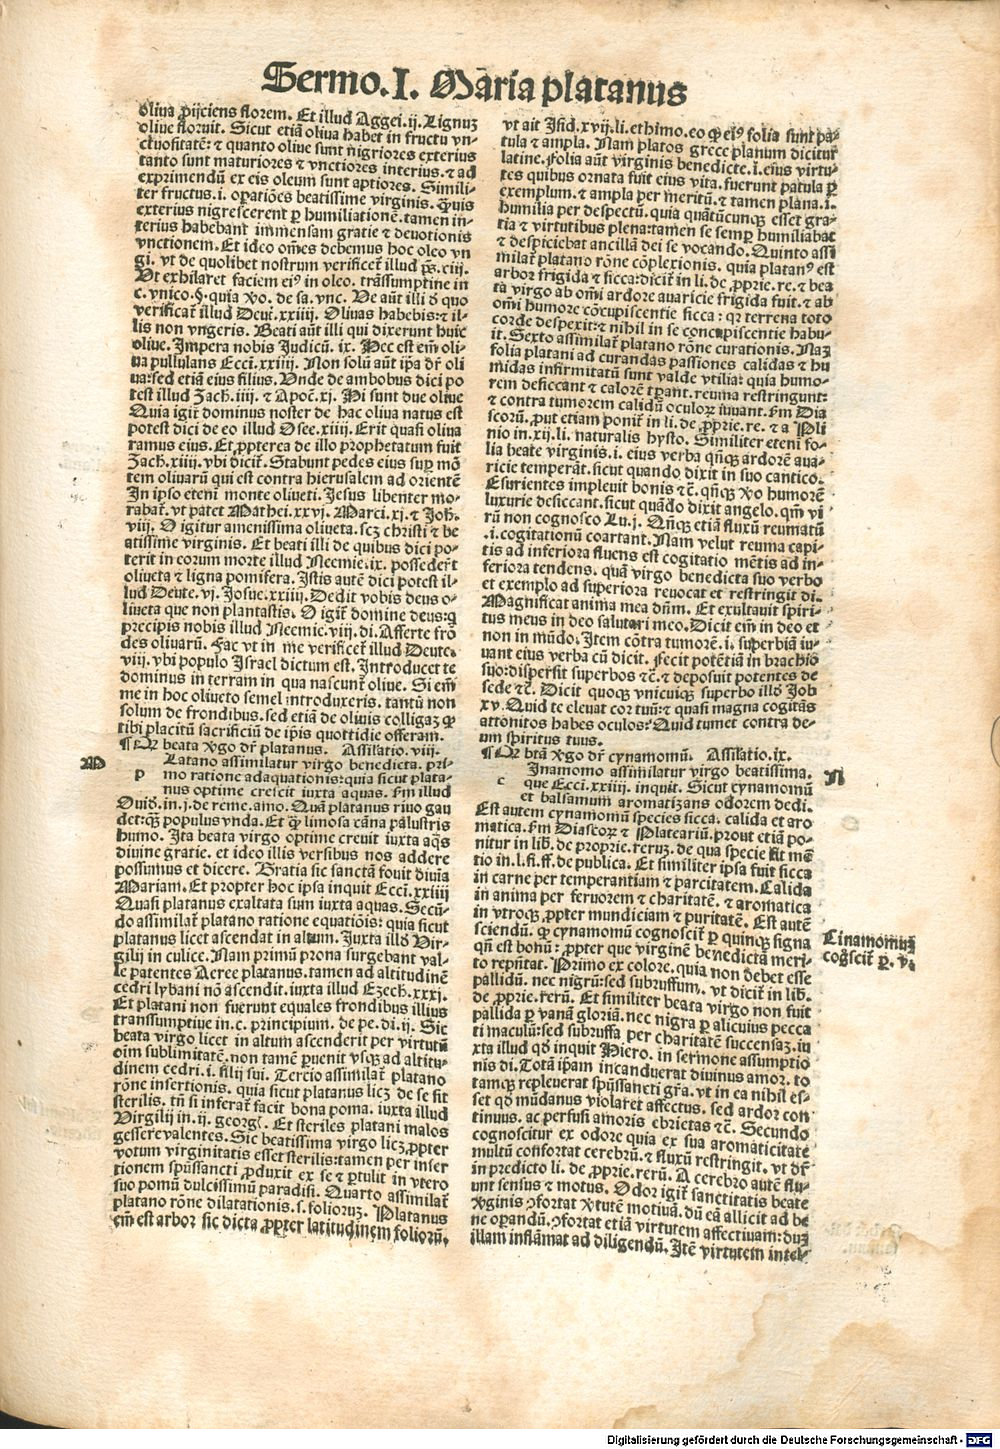 Sermo. I. Maria platanus
oliua ꝓijciens florem. Et illud Aggei. ij. Lignuʒ
oliue floruit. Sicut etiã oliua habet in fructu vn-
ctuositatē: ⁊ quanto oliue sunt nigriores exterius
tanto sunt maturiores ⁊ vnctiores interius. ⁊ ad
exprimendũ ex eis oleum sunt aptiores. Simili-
ter fructus. i. oꝑatiões beatissime virginis. ꝙuis
exterius nigrescerent ꝑ humiliationē. tamen in-
terius habebant immensam gratie ⁊ deuotionis
vnctionem. Et ideo oḿes debemus hoc oleo vn
gi. vt de quolibet nostrum verificet̃ illud p̄s. ciij.
Ut exhilaret faciem eiꝰ in oleo. trãssumptine in
c. vnico. §. quia xo. de sa. vnc. De aũt illi ð quo
verificat̃ illud Deut. xxiiij. Oliuas habebis: ⁊ il-
lis non vngeris. Beati aũt illi qui dixerunt huic
oliue. Impera nobis Judicũ. ix. Hec est em̃ oli-
ua pullulans Ecci. xxiiij. Non solũ aũt ip̃a dr̃ oli
ua: sed etiã eius filius. Unde de ambobus dici po
test illud Zach. iiij. ⁊ Apoc̃. xj. Hi sunt due oliue
Quia igit̃ dominus noster de hac oliua natus est
potest dici de eo illud Osee. xiiij. Erit quasi oliua
ramus eius. Et ꝓpterea de illo prophetatum fuit
Zach. xiiij. vbi dicit̃. Stabunt pedes eius suꝑ mō
tem oliuarũ qui est contra hierusalem ad orientē
In ipso eteni monte oliueti. Jesus libenter mo-
rabat̃. vt patet Mathei. xxvj. Marci. xj. ⁊ Joh̃.
viij. O igitur amenissima oliueta. scʒ christi ⁊ be
atissime virginis. Et beati illi de quibus dici po-
terit in eorum morte illud Neemie. ix. possedert̃
oliueta ⁊ ligna pomifera. Istis autē dici potest il-
lud Deute. vj. Josue. xxiiij. Dedit vobis deus o-
liueta que non plantastis. O igit̃ domine deus: q
precipis nobis illud Neemie. viij. di. Afferte frõ
des oliuarũ. Fac vt in me verificet̃ illud Deute.
viij. vbi populo Israel dictum est. Introducet te
dominus in terram in qua nascunt̃ oliue. Si em̃
me in hoc oliueto semel introduxeris. tantũ non
solum de frondibus. sed etiã de oliuis colligaʒ ꝙ
tibi placitũ sacrificiũ de ip̃is quottidie offeram.
¶ Qr beata ꝟgo dr̃ platanus. Assilatio. viij.
M
Platano assimilatur virgo benedicta. pri-
mo ratione adaquationis: quia sicut plata-
nus optime crescit iuxta aquas. ẜm illud
Ouið. in. j. de reme. amo. Quã platanus riuo gau
det: qꝫ populus vnda. Et ꝙ limosa cãna palustris
humo. Ita beata virgo optime creuit iuxta aq̃s
diuine gratie. et ideo illis versibus nos addere
possumus et dicere. Gratia sic sanctã fouit diuia
Mariam. Et propter hoc ipsa inquit Ecci. xxiiij
Quasi platanus exaltata sum iuxta aquas. Secũ-
do assimilat̃ platano ratione equatiõis: quia sicut
platanus licet ascendat in altum. Juxta illð Vir-
gilij in culice. Nam primũ prona surgebant val-
le patentes Aeree platanus. tamen ad altitudinē
cedri lybani nō ascendit. iuxta illud Ezech. xxxj.
Et platani non fuerunt equales frondibus illius
transsumptiue in. c. principium. de pe. di. ij. Sic
beata virgo licet in altum ascenderit per virtutũ
oim sublimitatē. non tamē ꝑuenit vsqꝫ ad altitu-
dinem cedri. i. filij sui. Tercio assimilat̃ platano
rõne insertionis. quia sicut platanus licʒ de se sit
sterilis. tñ si inserat̃ facit bona poma. iuxta illud
Virgilij in. ij. georg̃. Et steriles platani malos
gessere valentes. Sic beatissima virgo licʒ ꝓpter
votum virginitatis esset sterilis: tamen per inser
tionem sp̃ussancti ꝓduxit ex se ⁊ ꝑtulit in vtero
suo pomũ dulcissimũ paradisi. Quarto assimilat̃
platano rõne dilatationis. s. folioruʒ. Platanus
em̃ est arbor sic dicta ꝓpter latitudinem foliorũ.
vt ait Isid. xvij. li. ethimo. eo ꝙ eiꝰ folia sunt pa-
tula ⁊ ampla. Nam platos grece planum dicitur
latine. Folia aũt virginis benedicte. i. eius virtu-
tes quibus ornata fuit eius vita. fuerunt patula ꝑ
exemplum. ⁊ ampla per meritũ. ⁊ tamen plana. i.
humilia per despectũ. quia quãtũcunqꝫ esset gra-
tia ⁊ virtutibus plena: tamen se semꝑ humiliabat
⁊ despiciebat ancillã dei se vocando. Quinto assi
milat̃ platano rõne cõplexionis. quia platanꝰ est
arbor frigida ⁊ sicca: dicit̃ in li. de ꝓprie. re. ⁊ bea
ta virgo ab om̃i ardore auaricie frigida fuit. ⁊ ab
om̃i humore cõcupiscentie sicca: qꝛ terrena toto
corde despexit: ⁊ nihil in se concupiscentie habu-
it. Sexto assimilat̃ platano rõne curationis. Naʒ
folia platani ad curandas passiones calidas ⁊ hu
midas infirmitatũ sunt valde vtilia: quia humo-
rem desiccant ⁊ calorē tꝑant. reuma restringunt:
⁊ contra tumorem calidũ oculoꝝ iuuant. ẜm Dia
scorũ. ꝓut etiam ponit̃ in li. de ꝓprie. re. ⁊ a Pli
nio in. xij. li. naturalis hysto. Similiter etenī fo-
lia beate virginis. i. eius verba qñqꝫ ardorē aua-
ricie temperãt. sicut quando dixit in suo cantico.
Esurientes impleuit bonis ⁊ c̃. qñqꝫ ꝟo humorē
luxurie desiccant. sicut quãdo dixit angelo. qm̃ vi
rũ non cognosco Lu. j. Qñqꝫ etiã fluxũ reumatũ
. i. cogitationũ coartant. Nam velut reuma capi-
tis ad inferiora fluens est cogitatio mētis ad in-
feriora tendens. quã virgo benedicta suo verbo
et exemplo ad superiora reuocat et restringit di.
Magnificat anima mea dñm. Et exultauit spiri-
tus meus in deo salutari meo. Dicit em̃ in deo et
non in mũdo. Item cõtra tumorē. i. superbiã iu-
uant eius verba cũ dicit. Fecit potētiã in brachio
suo: dispersit superbos ⁊ c̃. ⁊ deposuit potentes de
sede ⁊ c̃. Dicit quoqꝫ vnicuiqꝫ superbo illð Job
xv. Quid te eleuat cor tuũ: ⁊ quasi magna cogitãs
attonitos habes oculos: Quid tumet contra de-
um spiritus tuus.
¶ Qr bt̃ã ꝟgo dr̃ cynamomũ. Assilatio. ix.
N
Cinamomo assimilatur virgo beatissima.
que Ecci. xxiiij. inquit. Sicut cynamomũ
et balsamum aromatizans odorem dedi.
Est autem cynamomũ species sicca. calida et aro
matica. ẜm Diascoꝝ ⁊ Plateariũ. prout etiã po-
nitur in lib. de proprie. reruʒ. de qua specie fit mē
tio in. l. fi. ff. de publica. Et similiter ipsa fuit sicca
in carne per temperantiam ⁊ parcitatem. Calida
in anima per feruorem ⁊ charitatē. ⁊ aromatica
in vtroqꝫ ꝓpter mundiciam ⁊ puritatē. Est autē
sciendũ. ꝙ cynamomũ cognoscit̃ ꝑ quinqꝫ signa
qñ est bonũ: ꝓpter que virginē benedictã meri-
to repũtat. Primo ex colore. quia non debet esse
pallidũ. nec nigrũ: sed subruffum. vt dicit̃ in lib.
de ꝓprie. rerũ. Et similiter beata virgo non fuit
pallida ꝑ vanã gloriã. nec nigra ꝑ alicuius pecca
ti maculũ: sed subruffa per charitatē succensaʒ. iu
xta illud qð inquit Hiero. in sermone assumptio
nis di. Totã ip̃am incanduerat diuinus amor. to
tamqꝫ repleuerat sp̃ussancti gr̃a. vt in ea nihil es-
set qð mũdanus violaret affectus. sed ardor con
tinuus. ac perfusi amoris ebrietas ⁊ c̃. Secundo
cognoscitur ex odore quia ex sua aromaticitate
multũ confortat cerebrũ. ⁊ fluxũ restringit. vt dr̃
in predicto li. de ꝓprie. rerũ. A cerebro autē flu-
unt sensus ⁊ motus. Odor igit̃ sanctitatis beate
ꝟginis ↄfortat ꝟtutē motiuã. dũ eã allicit ad be
ne oꝑandũ. ↄfortat etiã virtutem affectiuam: duʒ
illam inflãmat ad diligendũ. Itē virtutem intel-
Cinamomũ
cog̃scit̃ ꝑ. v.
Digitalisierung gefördert durch die Deutsche Forschungsgemeinschaft - DFG